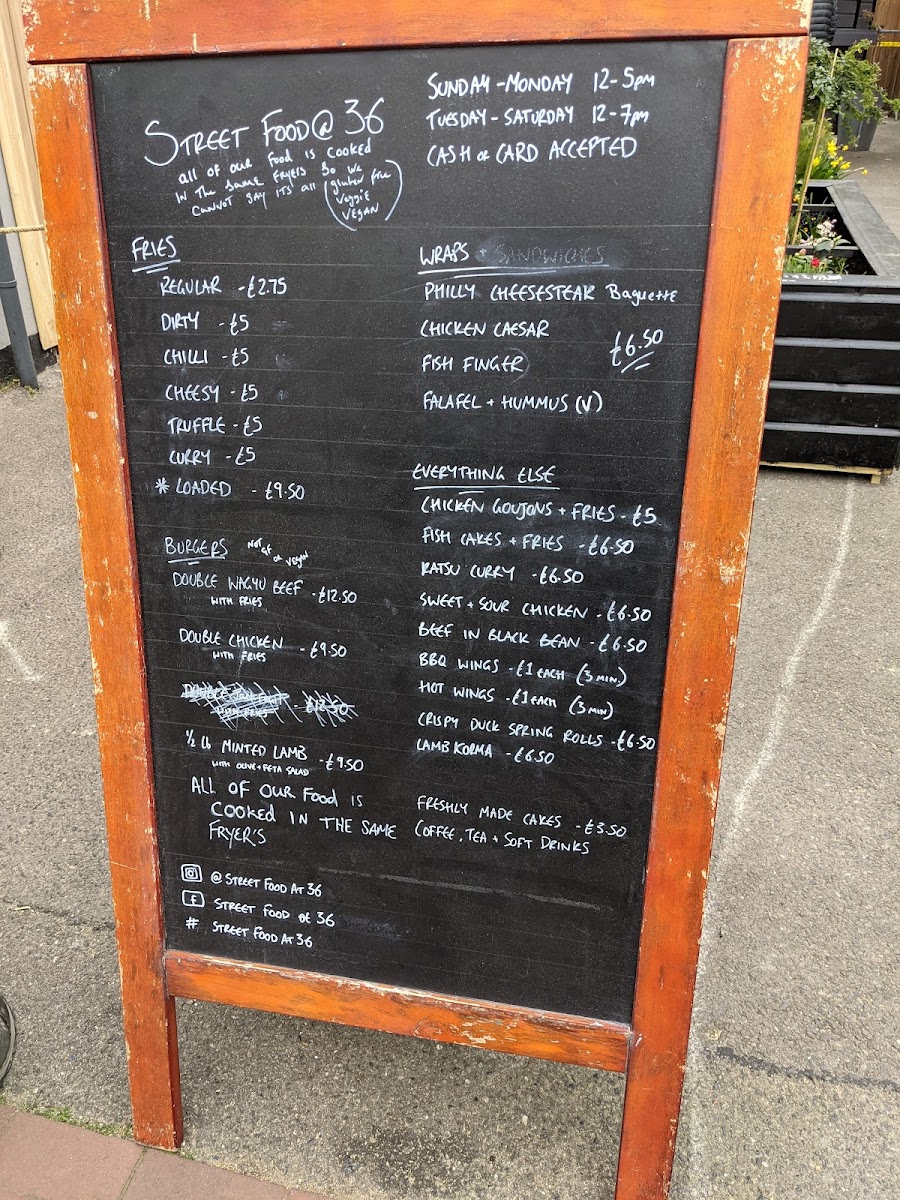 STREET FOOD@ 36
all of our food is cooked
in the same fryers so we
cannot say its' all gluten free
veggie
VEGAN
SUNDAY - MONDAY 12-5pm
TUESDAY - SATURDAY 12-7pm
CASH or CARD ACCEPTED
FRIES
REGULAR - £2.75
DIRTY - £5
CHILLI - £5
CHEESY - £5
TRUFFLE - £5
CURRY - £5
* LOADED - £9.50
BURGERS NOT GF or Vegan
DOUBLE WAGYU BEEF - £12.50
WITH FRIES
DOUBLE CHICKEN - £9.50
WITH FRIES
½ lb MINTED LAMB - £9.50
WITH OLIVE + FETA SALAD
ALL OF OUR FOOD IS
COOKED IN THE SAME
FRYER'S
@ STREET FOOD AT 36
STREET FOOD at 36
# STREET FOOD AT 36
WRAPS + SANDWICHES
PHILLY CHEESESTEAK Baguette
CHICKEN CAESAR
£6.50
FISH FINGER
FALAFEL + HUMMUS (V)
EVERYTHING ELSE
CHICKEN GOUJONS + FRIES - £5
FISH CAKES + FRIES - £6.50
KATSU CURRY - £6.50
SWEET + SOUR CHICKEN - £6.50
BEEF IN BLACK BEAN - £6.50
BBQ WINGS - £1 EACH (3 MIN)
HOT WINGS - £1 EACH (3 MIN)
CRISPY DUCK SPRING ROLLS - £6.50
LAMB KORMA - £6.50
FRESHLY MADE CAKES - £3.50
COFFEE, TEA + SOFT DRINKS